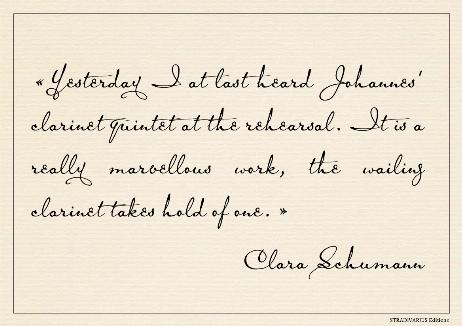 « Yesterday I at last heard Johannes'
clarinet quintet at the rehearsal. It is a
really marvellous work, the wailing
clarinet takes hold of one. »
Clara Schumann
STRADIVARIUS Editions